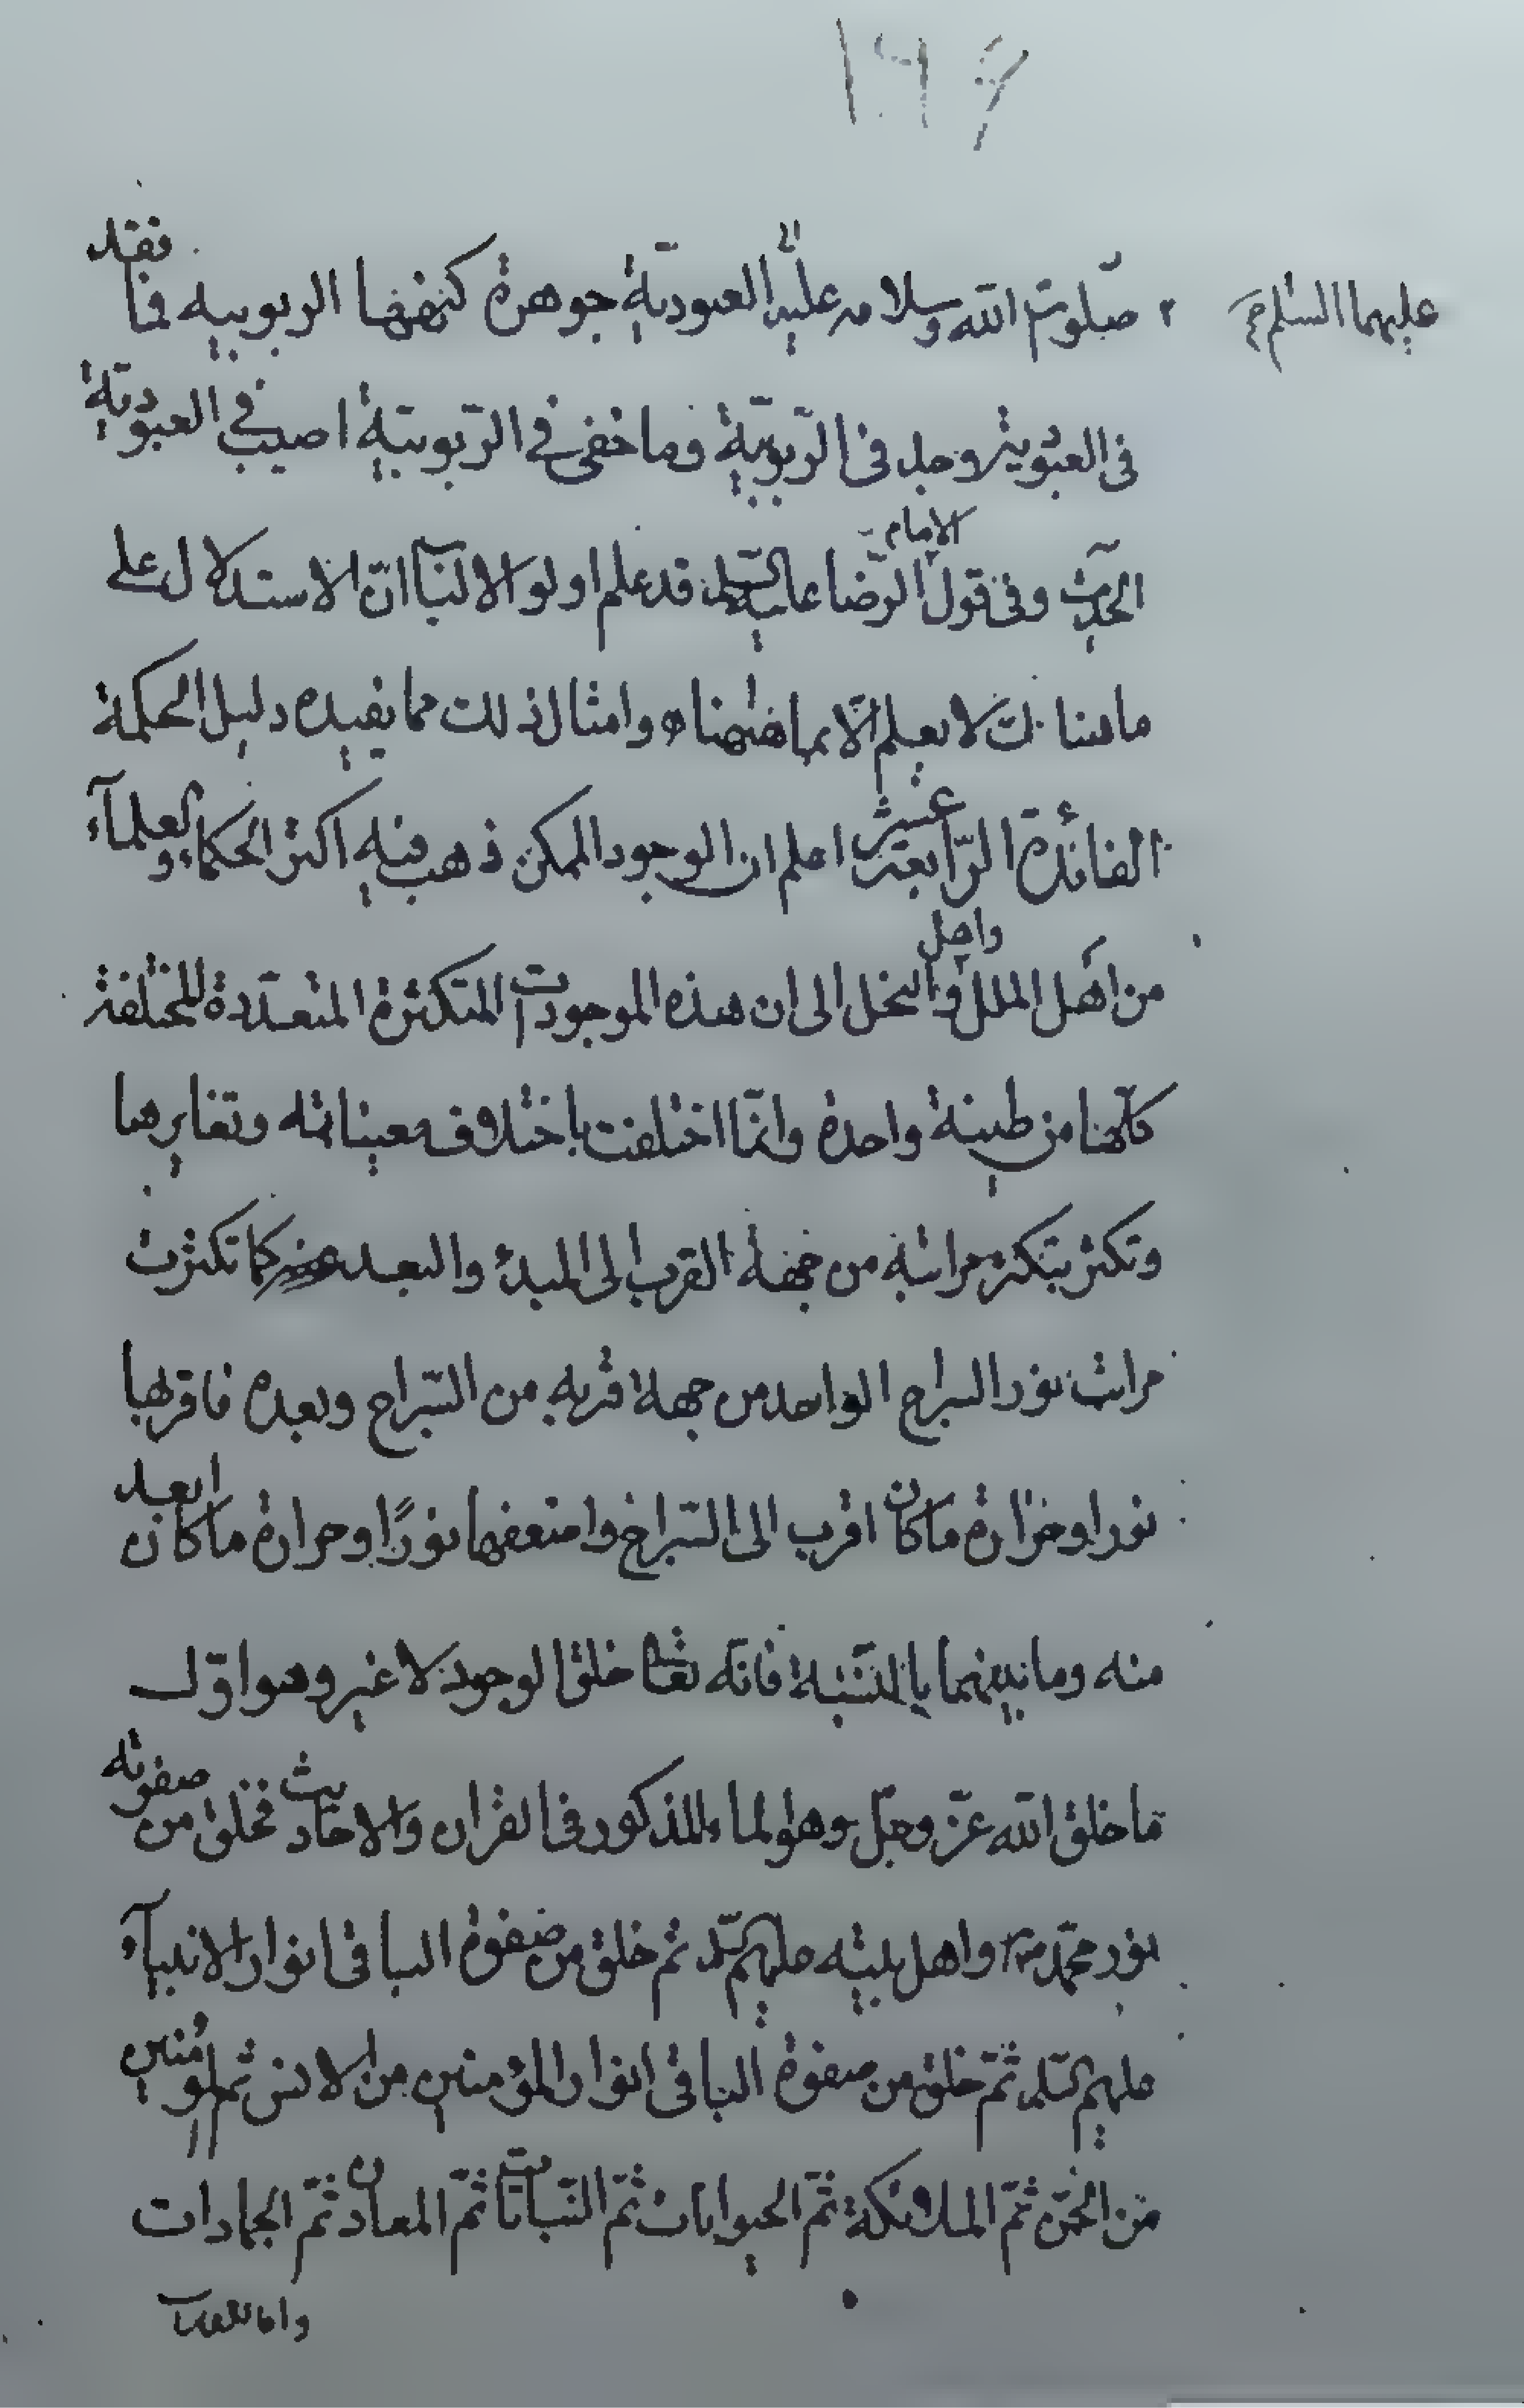 ١٩٧
عليهما السلم صح
صلوت الله وسلامه عليه العبودية جوهرة كنهها الربوبيه فما فقد
فى العبودية وجد فى الربوبيّة وما خفى فى الرّبوبيّة اصيب فى العبوديّة
الحديث وفى قول الامام الرّضا عليه السلم قد علم اولو الالباب انّ الاستدلال على
ما هنالك لا يعلم الّا بما ههنا وامثال ذلك مما يفيده دليل الحكمة
الفائدة الرّابعة عشر اعلم ان الوجود الممكن ذهب فيه اكثر الحكماء والعلمآء
من اهل الملل واهل النحل الى ان هذه الموجودات المتكثرة المتعدّدة المختلفة
كلّها من طينة واحدة وانّما اختلفت باختلاف معيناته وتغايرها
وتكثر بتكثر مراتبه من جهة القرب الى المبدء والبعد كما تكثرت
مراتب نور السراج الواحد من جهة قربه من السّراج وبعده فاقربها
نورا وحرارة ما كان اقرب الى السّراج واضعفها نورًا وحرارة ما كان ابعد
منه وما بينهما بالنّسبة فانّه تعالى خلق الوجود لا غير وهو اوّل
ما خلق الله عزّ وجلّ وهو الماء المذكور فى القرآن والاحاديث فخلق من صفوته
نور محمّد ص واهل بيته عليهم السّلم ثم خلق من صفوة الباقى انوار الانبيآء
عليهم السّلم ثمّ خلق من صفوة الباقى انوار المؤمنين من الانس ثم المؤمنين
من الجن ثمّ الملائكة ثمّ الحيوانات ثمّ النّباتات ثمّ المعادن ثمّ الجمادات